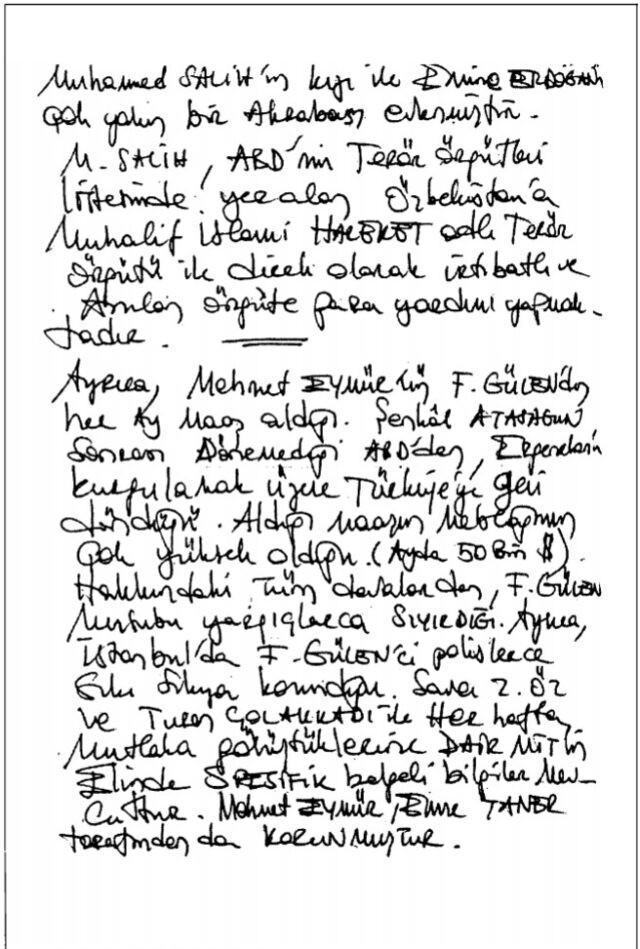 Muhamed SALİH'in kızı ile Emine ERDOĞAN
çok yakın bir Akrabası evlenmiştir.
M. SALİH, ABD'nin Terör Örgütleri
listesinde yer alan Özbekistan'a
Muhalif İslami HAREKET adlı Terör
Örgütü ile direk olarak irtibatlı ve
Anılan örgüte para yardımı yapmak-
tadır.
Ayrıca, Mehmet EYMÜR'ün F. GÜLEN'den
her Ay Maaş aldığı. Şenkal ATASAGUN
Sonrası Dönemediği ABD'den, Ergenekon'u
kurgulamak üzere Türkiye'ye geri
döndüğü. Aldığı maaşın Meblağının
çok yüksek olduğu. (Ayda 50 Bin $)
Hakkındaki Tüm davalardan, F. GÜLEN
Mensubu yargıçlarca SIYIRDIĞI. Ayrıca,
İstanbul'da F. GÜLEN'ci polislerce
Sıkı korunduğu. Savcı Z. ÖZ
ve Turan ÇOLAKKADI ile Her hafta
Mutlaka görüştüklerine DAİR MİT'in
Elinde SPESİFİK belgeli bilgiler Mev-
cuttur. Mehmet EYMÜR, Emre TANER
tarafından da KORUNMUŞTUR.